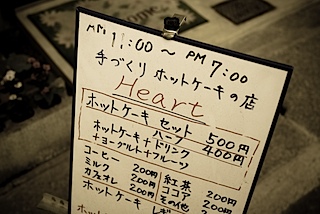 AM 11:00 ～ PM 7:00
手づくり ホットケーキの店
Heart
ホットケーキ セット 500円
ハーフ 400円
ホットケーキ+ドリンク
+ヨーグルト+フルーツ
コーヒー 200円 紅茶 200円
ミルク 200円 ココア 200円
カフェオレ 200円 その他 200円
ホットケーキ